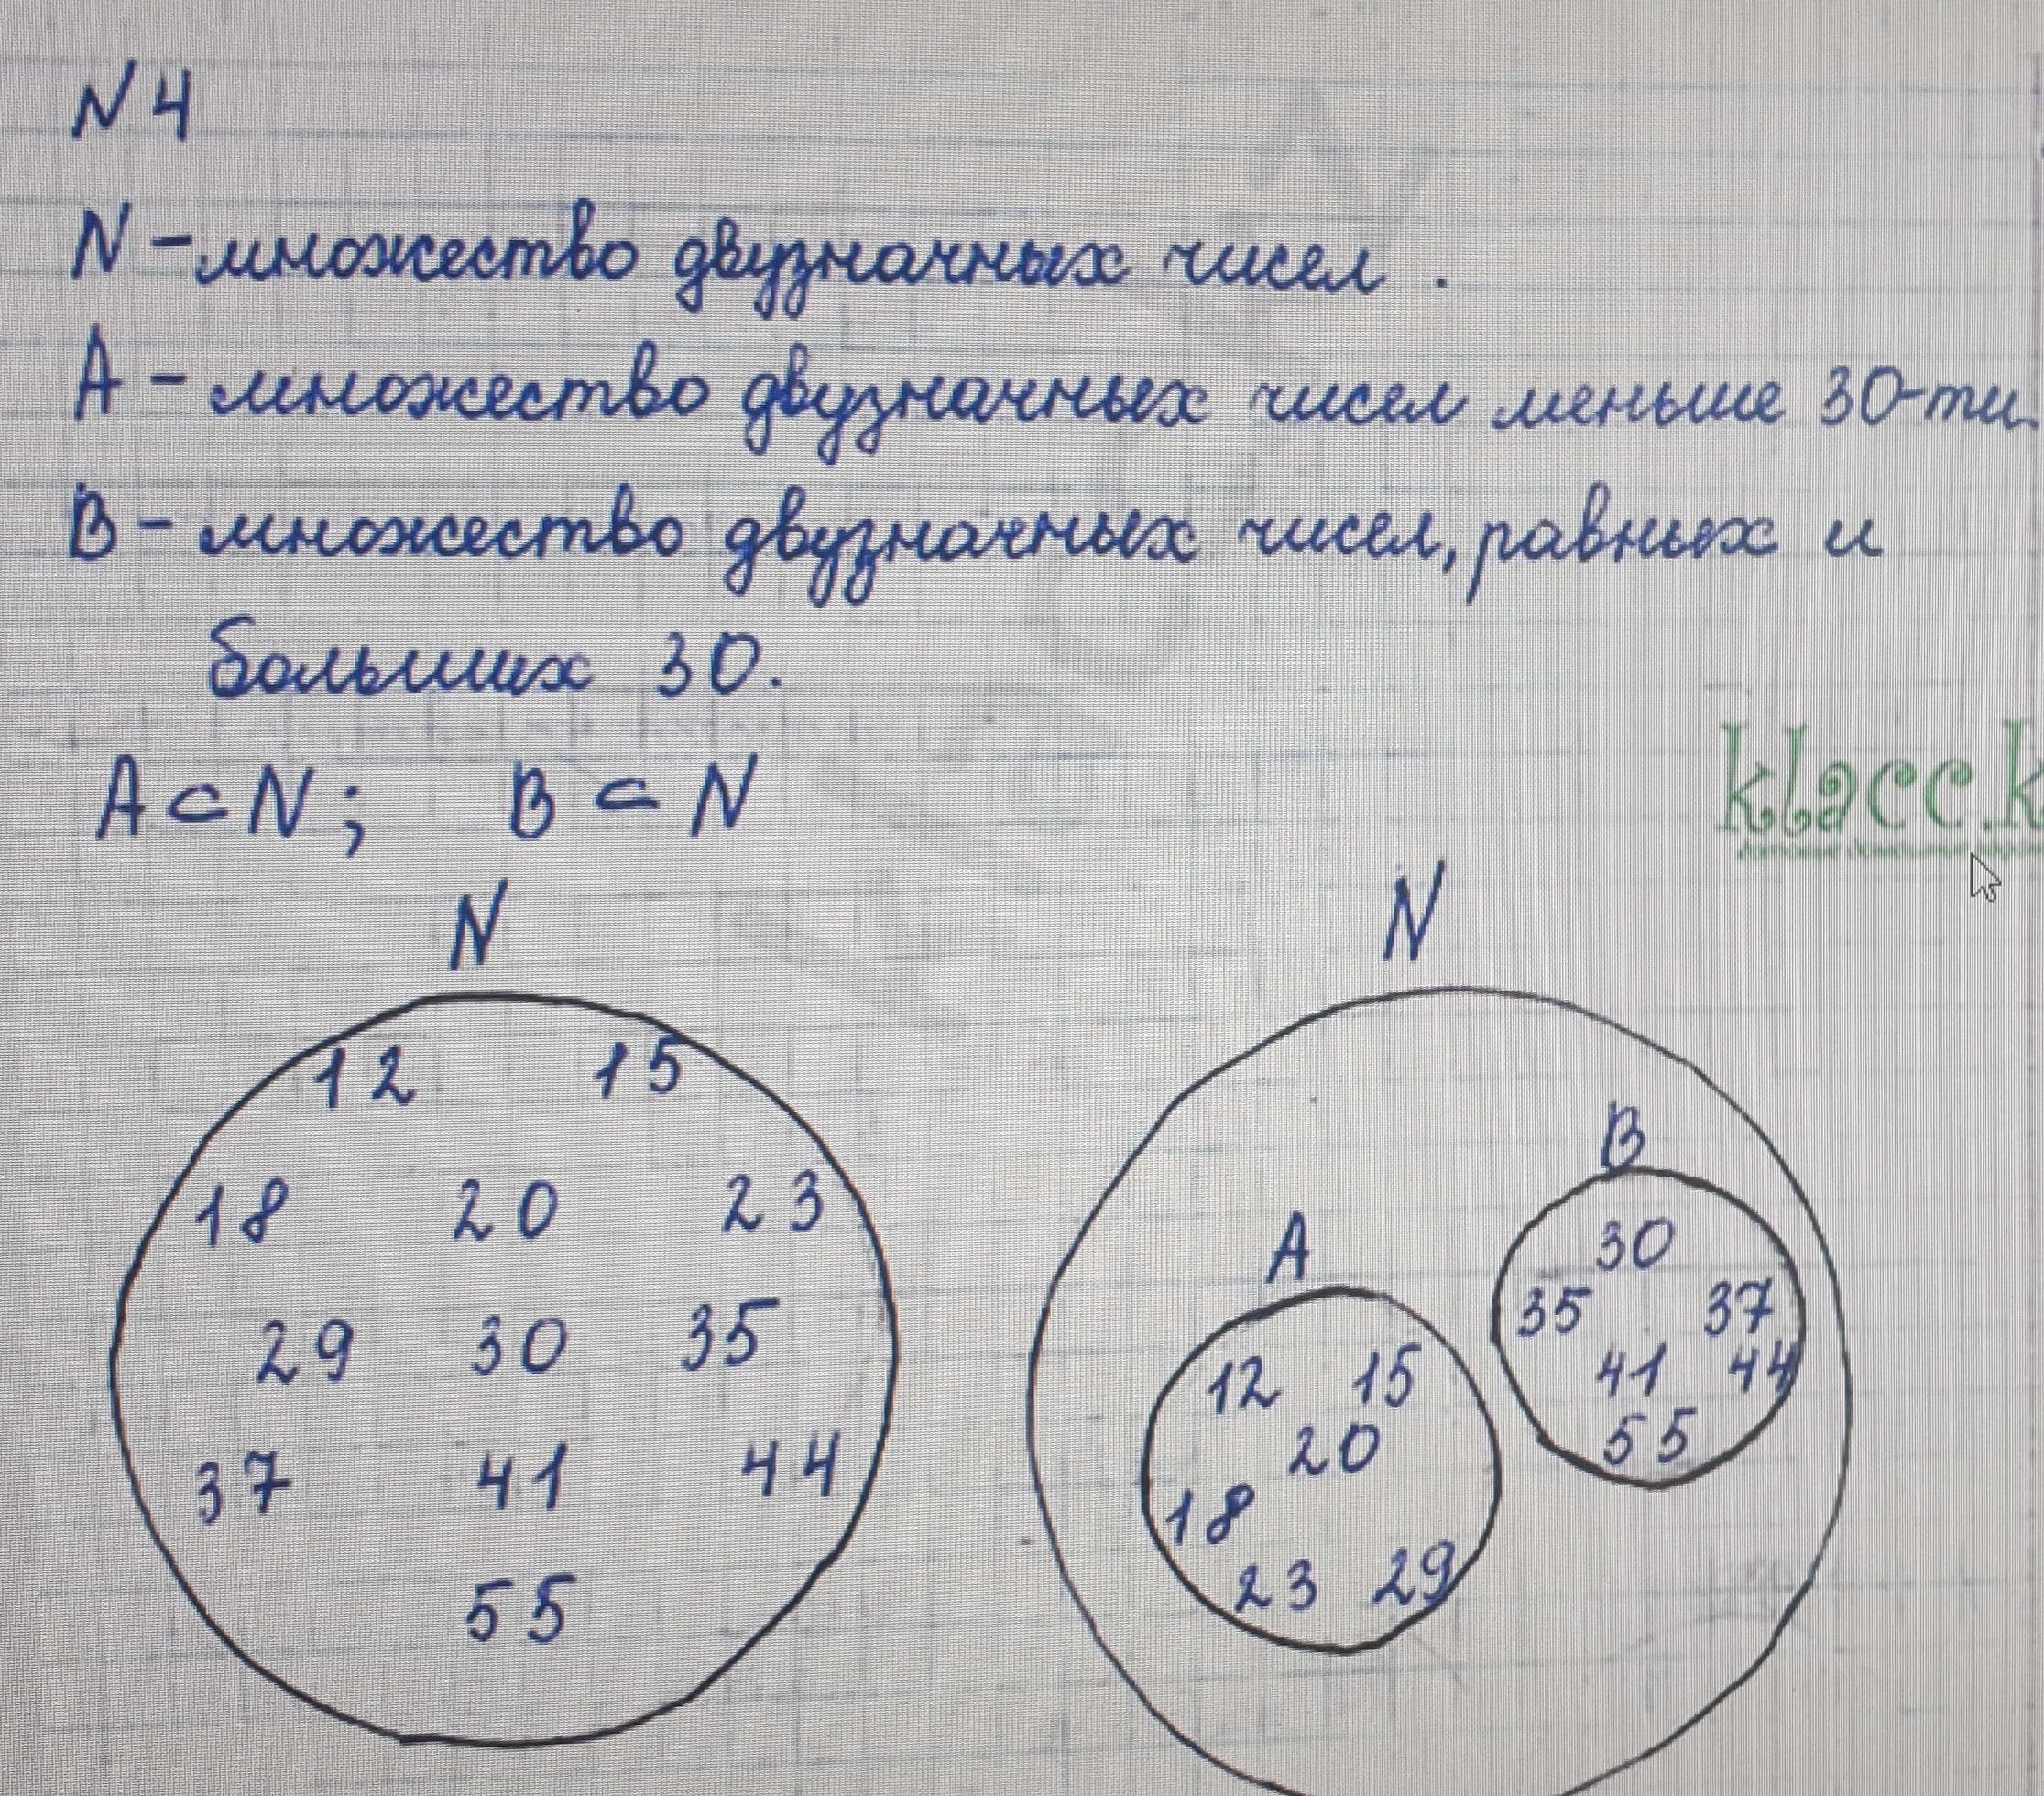 N4
N – множество двузначных чисел .
A – множество двузначных чисел меньше 30-ти.
B – множество двузначных чисел, равных и
больших 30.
A ⊂ N ; B ⊂ N
klacc.k
N
12 15
18 20 23
29 30 35
37 41 44
55
N
A
12 15
20
18
23 29
B
30
35 37
41 44
55